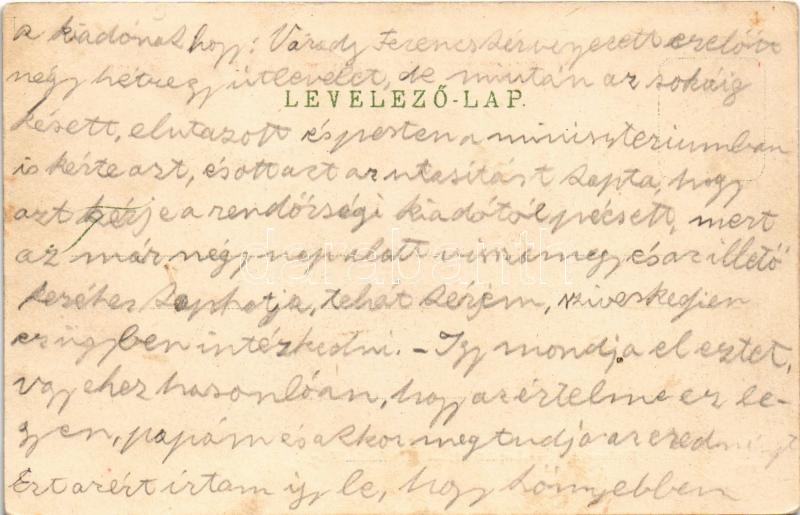 a kiadónak hogy: Várady Ferencz kérvényezett ezelőtt
négy hétre egy útlevelet, de miután az sokáig
LEVELEZŐ-LAP.
késett, elutazott és pesten a minisztériumban
is kérte azt, és ott azt az utasítást kapta, hogy
azt kérje a rendőrségi kiadótól pécsett, mert
az már négy nap alatt visszamegy és az illető
kezéhez kaphatja, tehát kérem, sziveskedjen
ez ügyben intézkedni. - Igy mondja el eztet,
vagy ehez hasonlóan, hogy az értelme ez le-
gyen, papám és akkor megtudja az eredményt
Ezt azért irtam igy le, hogy könnyebben
darabanth